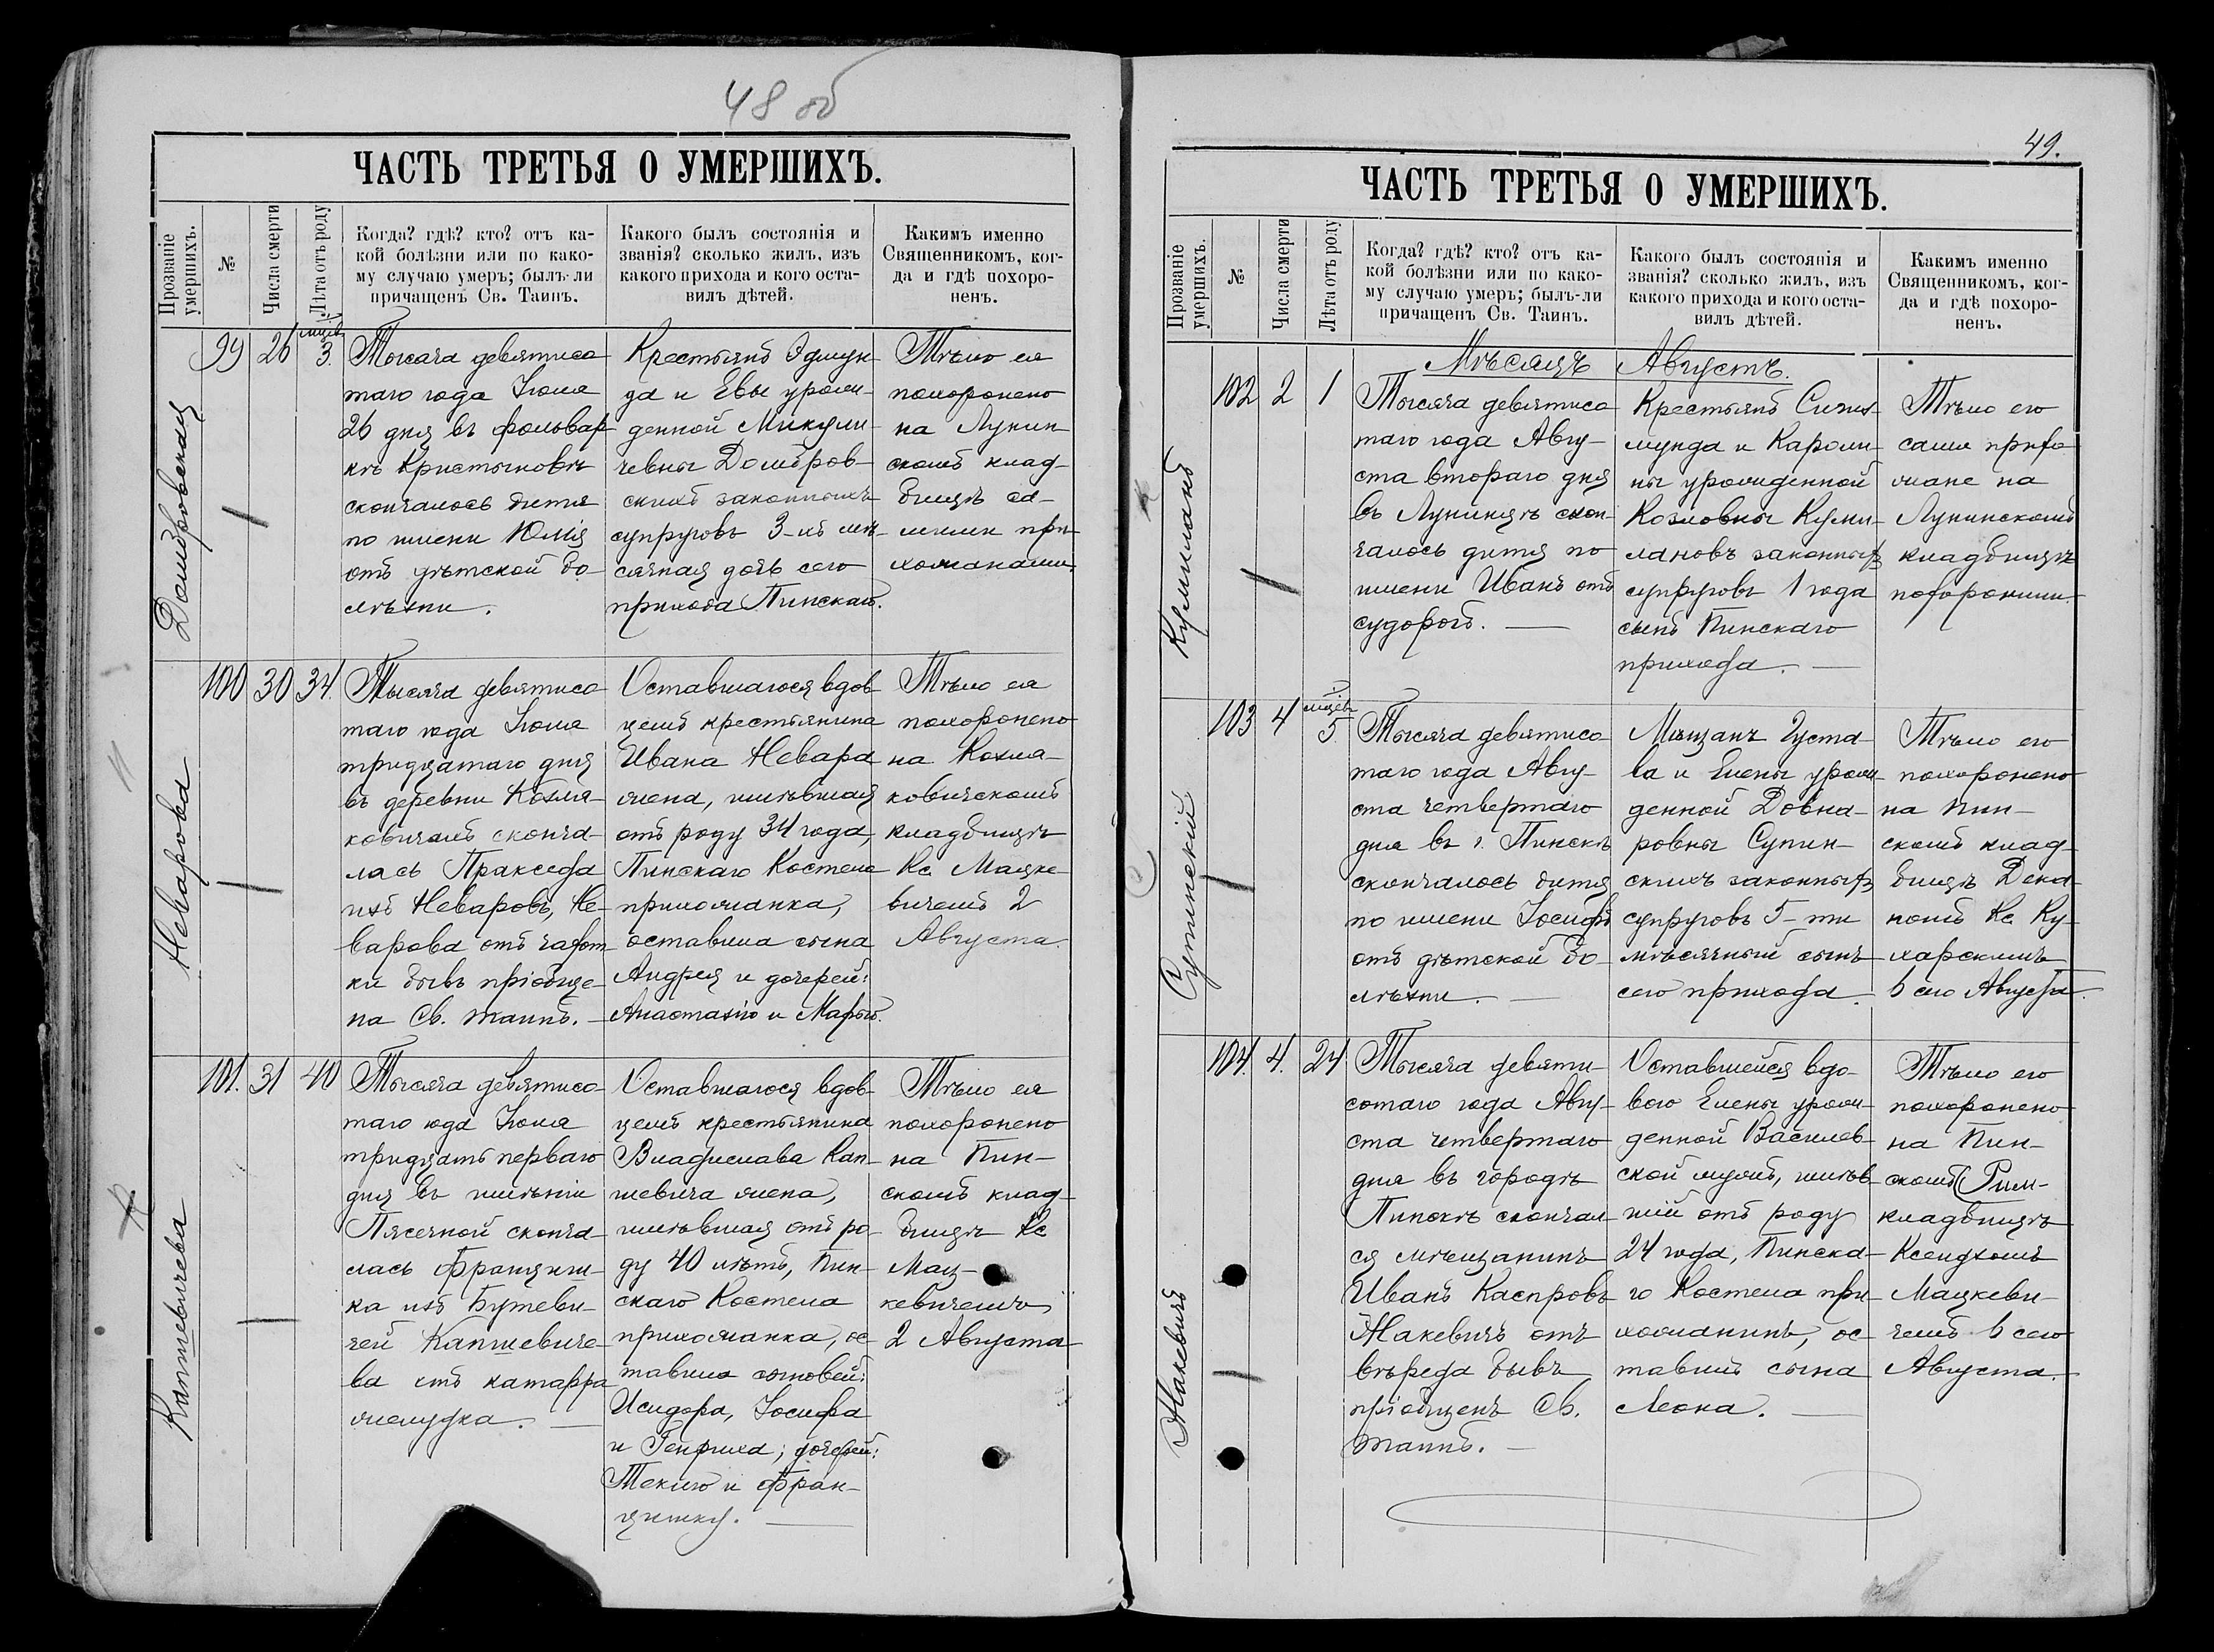 48 об
ЧАСТЬ ТРЕТЬЯ О УМЕРШИХЪ.
Прозваніе умершихъ.
№
Числа смерти
Лѣта отъ роду
Когда? гдѣ? кто? отъ ка-
кой болѣзни или по како-
му случаю умеръ; былъ-ли
причащенъ Св. Таинъ.
Какого былъ состоянія и
званія? сколько жилъ, изъ
какого прихода и кого оста-
вилъ дѣтей.
Какимъ именно
Священникомъ, ког-
да и гдѣ похоро-
ненъ.
Домбровская
99
26
3.
Тысяча девятисо
таго года Іюля
26 дня въ фольвар
кѣ Кристыновѣ
скончалось дитя
по имени Юлія
отъ дѣтской бо-
лѣзни.
Крестьянъ Эдмун-
да и Евы урож-
денной Микули-
чевны Домбров-
скихъ законныхъ
супруговъ 3-хъ мѣ-
сячная дочь сего
прихода Пинскаго.
Тѣло ея
похоронено
на Лунин
скомъ клад-
бищѣ са-
мими при
хожанами.
Неварова
100
30
34.
Тысяча девятисо
таго года Іюля
тридцатаго дня
въ деревни Козля-
ковичахъ сконча-
лась Пракседа
изъ Неваровъ, Не-
варова отъ чахот
ки бывъ пріобще-
на Св. таинъ.
Оставшагося вдов
цемъ крестьянина
Ивана Невара
жена, имѣвшая
отъ роду 34 года,
Пинскаго Костела
прихожанка,
оставила сына
Андрея и дочерей:
Анастазію и Марью.
Тѣло ея
похоронено
на Козля-
ковичскомъ
кладбищѣ
Кс. Мацке-
вичемъ 2
Августа.
Капшевичева
101.
31
40
Тысяча девятисо-
таго года Іюля
тридцать перваго
дня въ имѣніи
Пясечной сконча-
лась Францишка
ка изъ Бутеви-
чей Капшевиче-
ва отъ катарра
желудка.
Оставшагося вдов-
цемъ крестьянина
Владислава Кап-
шевича жена,
имѣвшая отъ ро-
ду 40 лѣтъ, Пин-
скаго Костела
прихожанка, ос-
тавила сыновей:
Исидора, Іосифа
и Генриха; дочерей:
Теклю и Фран-
цишку.
Тѣло ея
похоронено
на Пин-
скомъ клад-
бищѣ Кс
Мац-
кевичемъ
2 Августа
49.
ЧАСТЬ ТРЕТЬЯ О УМЕРШИХЪ.
Прозваніе умершихъ.
№
Числа смерти
Лѣта отъ роду
Когда? гдѣ? кто? отъ ка-
кой болѣзни или по како-
му случаю умеръ; былъ-ли
причащенъ Св. Таинъ.
Какого былъ состоянія и
званія? сколько жилъ, изъ
какого прихода и кого оста-
вилъ дѣтей.
Какимъ именно
Священникомъ, ког-
да и гдѣ похоро-
ненъ.
Мѣсяцъ Августъ.
Кулиманъ
102
2
1
Тысяча девятисо
таго года Авгу-
ста втораго дня
въ Лунинцѣ скон-
чалось дитя по
имени Иванъ отъ
судорогъ.
Крестьянъ Сигиз-
мунда и Кароли-
ны урожденной
Козловны Кули-
мановъ законныхъ
супруговъ 1 года
сынъ Пинскаго
прихода.
Тѣло его
сами прихо
жане на
Лунинскомъ
кладбищѣ
похоронили.
Супинскій
103
4
5
Тысяча девятисо
таго года Авгу-
ста четвертаго
дня въ г. Пинскѣ
скончалось дитя
по имени Іосифъ
отъ дѣтской бо-
лѣзни.
Мѣщанъ Густа-
ва и Елены урож-
денной Довна-
ровны Супин-
скихъ законныхъ
супруговъ 5-ти
мѣсячный сынъ
сего прихода.
Тѣло его
похоронено
на Пин-
скомъ клад-
бищѣ Дека-
номъ Кс. Ку-
харскимъ
6 сего Августа.
Жакевичъ
104.
4.
24.
Тысяча девяти-
сотаго года Авгу-
ста четвертаго
дня въ городѣ
Пинскѣ скончал-
ся мѣщанинъ
Иванъ Каспровъ
Жакевичъ отъ
вѣреда бывъ
пріобщенъ Св.
таинъ.
Оставшейся вдо-
вою Елены урож-
денной Василев-
ской мужъ, имѣв-
шій отъ роду
24 года, Пинска-
го Костела при-
хожанинъ, ос-
тавилъ сына
Леона.
Тѣло его
похоронено
на Пин-
скомъ Рим-
кладбищѣ
Ксендзомъ
Мацкеви-
чемъ 6 сего
Августа.